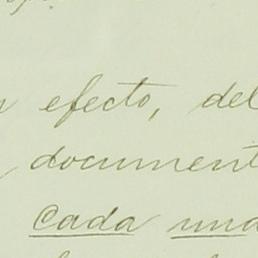 efecto, del
document
cada una